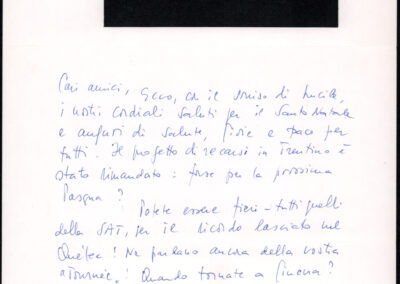 Cari amici, Ecco, con il sorriso di Lucile,
i nostri cordiali saluti per il Santo Natale
e auguri di salute, gioie e pace per
tutti. Il progetto di recarsi in Trentino è
stato rimandato: forse per la prossima
Pasqua?
Potete essere fieri - tutti quelli
della SAT, per il ricordo lasciato nel
Québec! Ne parlano ancora della vostra
"Tournée"! Quando tornate a